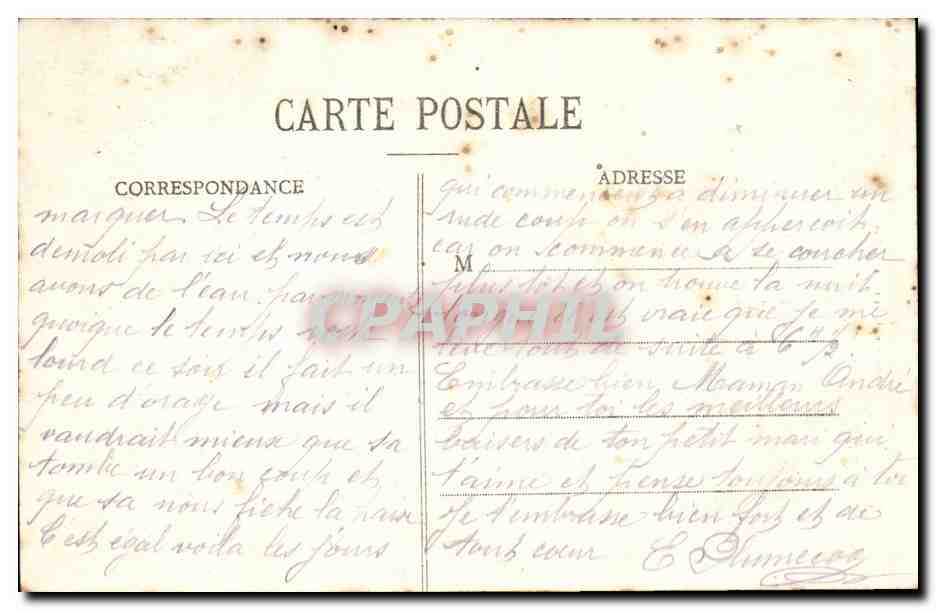 CARTE POSTALE
CORRESPONDANCE
marquer. Le temps est
demoli par ici et nous
avons de l'eau par
quoique le temps soit
lourd ce soir il fait un
peu d'orage mais il
vaudrait mieux que sa
tombe un bon coup et
que sa nous fiche la paix
C'est égal voila les jours
ADRESSE
qui commencent a diminuer un
rude coup on s'en apperçoit
car on commence a se coucher
M
plus tot et on trouve la nuit
est vraie que je me
tout de suite à 6
Embrasse bien Maman André
et pour toi les meilleurs
baisers de ton petit mari qui
t'aime et pense toujours à toi
Je t'embrasse bien fort et de
tout coeur E
CPAPHIL